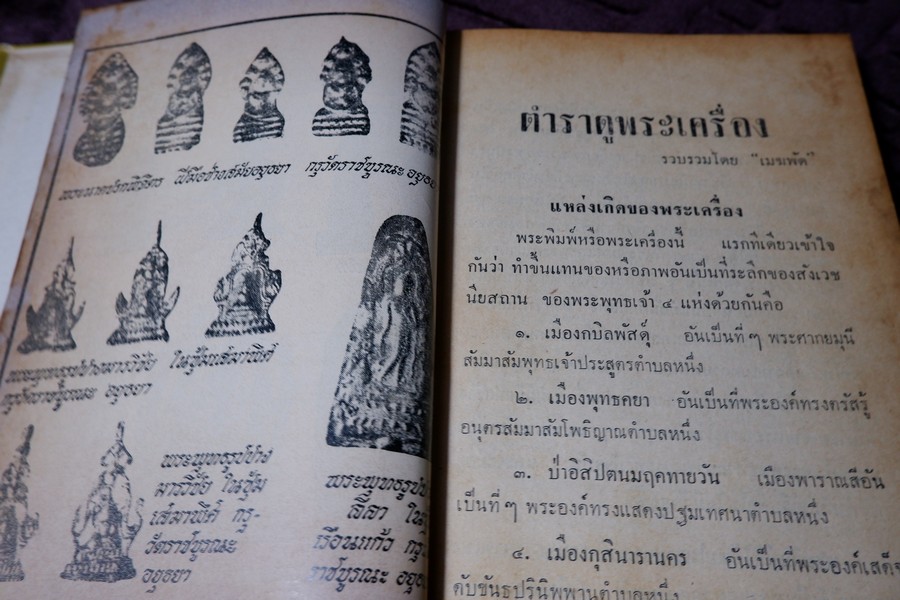 พระนาคปรกพิจิตร ฝีมือช่างสมัยอยุธยา กรุวัดราชบูรณะ
พระพุทธรูปปางมารวิชัย ในซุ้มเสมาพิศ
กรุวัดราชบูรณะ อยุธยา
พระพุทธรูปปาง
มารวิชัย ในซุ้ม
เสมาพิศ กรุ-
วัดราชบูรณะ
อยุธยา
พระพุทธรูปปาง
ลีลา ใน
เรือนแก้ว กรุ
ราชบูรณะ
ตำราดูพระเครื่อง
รวบรวมโดย "เมฆพัด"
แหล่งเกิดของพระเครื่อง
พระพิมพ์หรือพระเครื่องนี้ แรกทีเดียวเข้าใจ
กันว่า ทำขึ้นแทนของหรือภาพอันเป็นที่ระลึกของสังเวช
นียสถาน ของพระพุทธเจ้า ๔ แห่งด้วยกันคือ
๑. เมืองกบิลพัสดุ์ อันเป็นที่ ๆ พระศากยมุนี
สัมมาสัมพุทธเจ้าประสูตรตำบลหนึ่ง
๒. เมืองพุทธคยา อันเป็นที่พระองค์ทรงตรัสรู้
อนุตรสัมมาสัมโพธิญาณตำบลหนึ่ง
๓. ป่าอิสิปตนมฤคทายวัน เมืองพาราณสีอัน
เป็นที่ ๆ พระองค์ทรงแสดงปฐมเทศนาตำบลหนึ่ง
๔. เมืองกุสินารานคร อันเป็นที่พระองค์เสด็จ
ดับขันธปรินิพพานตำบลหนึ่ง